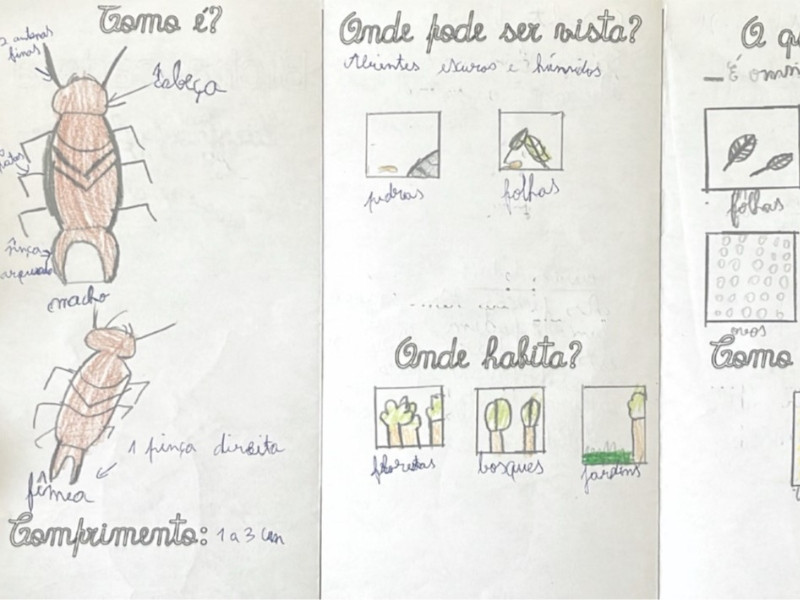 Como é?
2 antenas
finas
Cabeça
patas
Pinça
arqueada
macho
1 pinça direita
fêmea
Comprimento: 1 a 3 cm
Onde pode ser vista?
escuros e húmidos
pedras
folhas
Onde habita?
florestas
bosques
jardins
O qu
É omní
folhas
ovos
Como